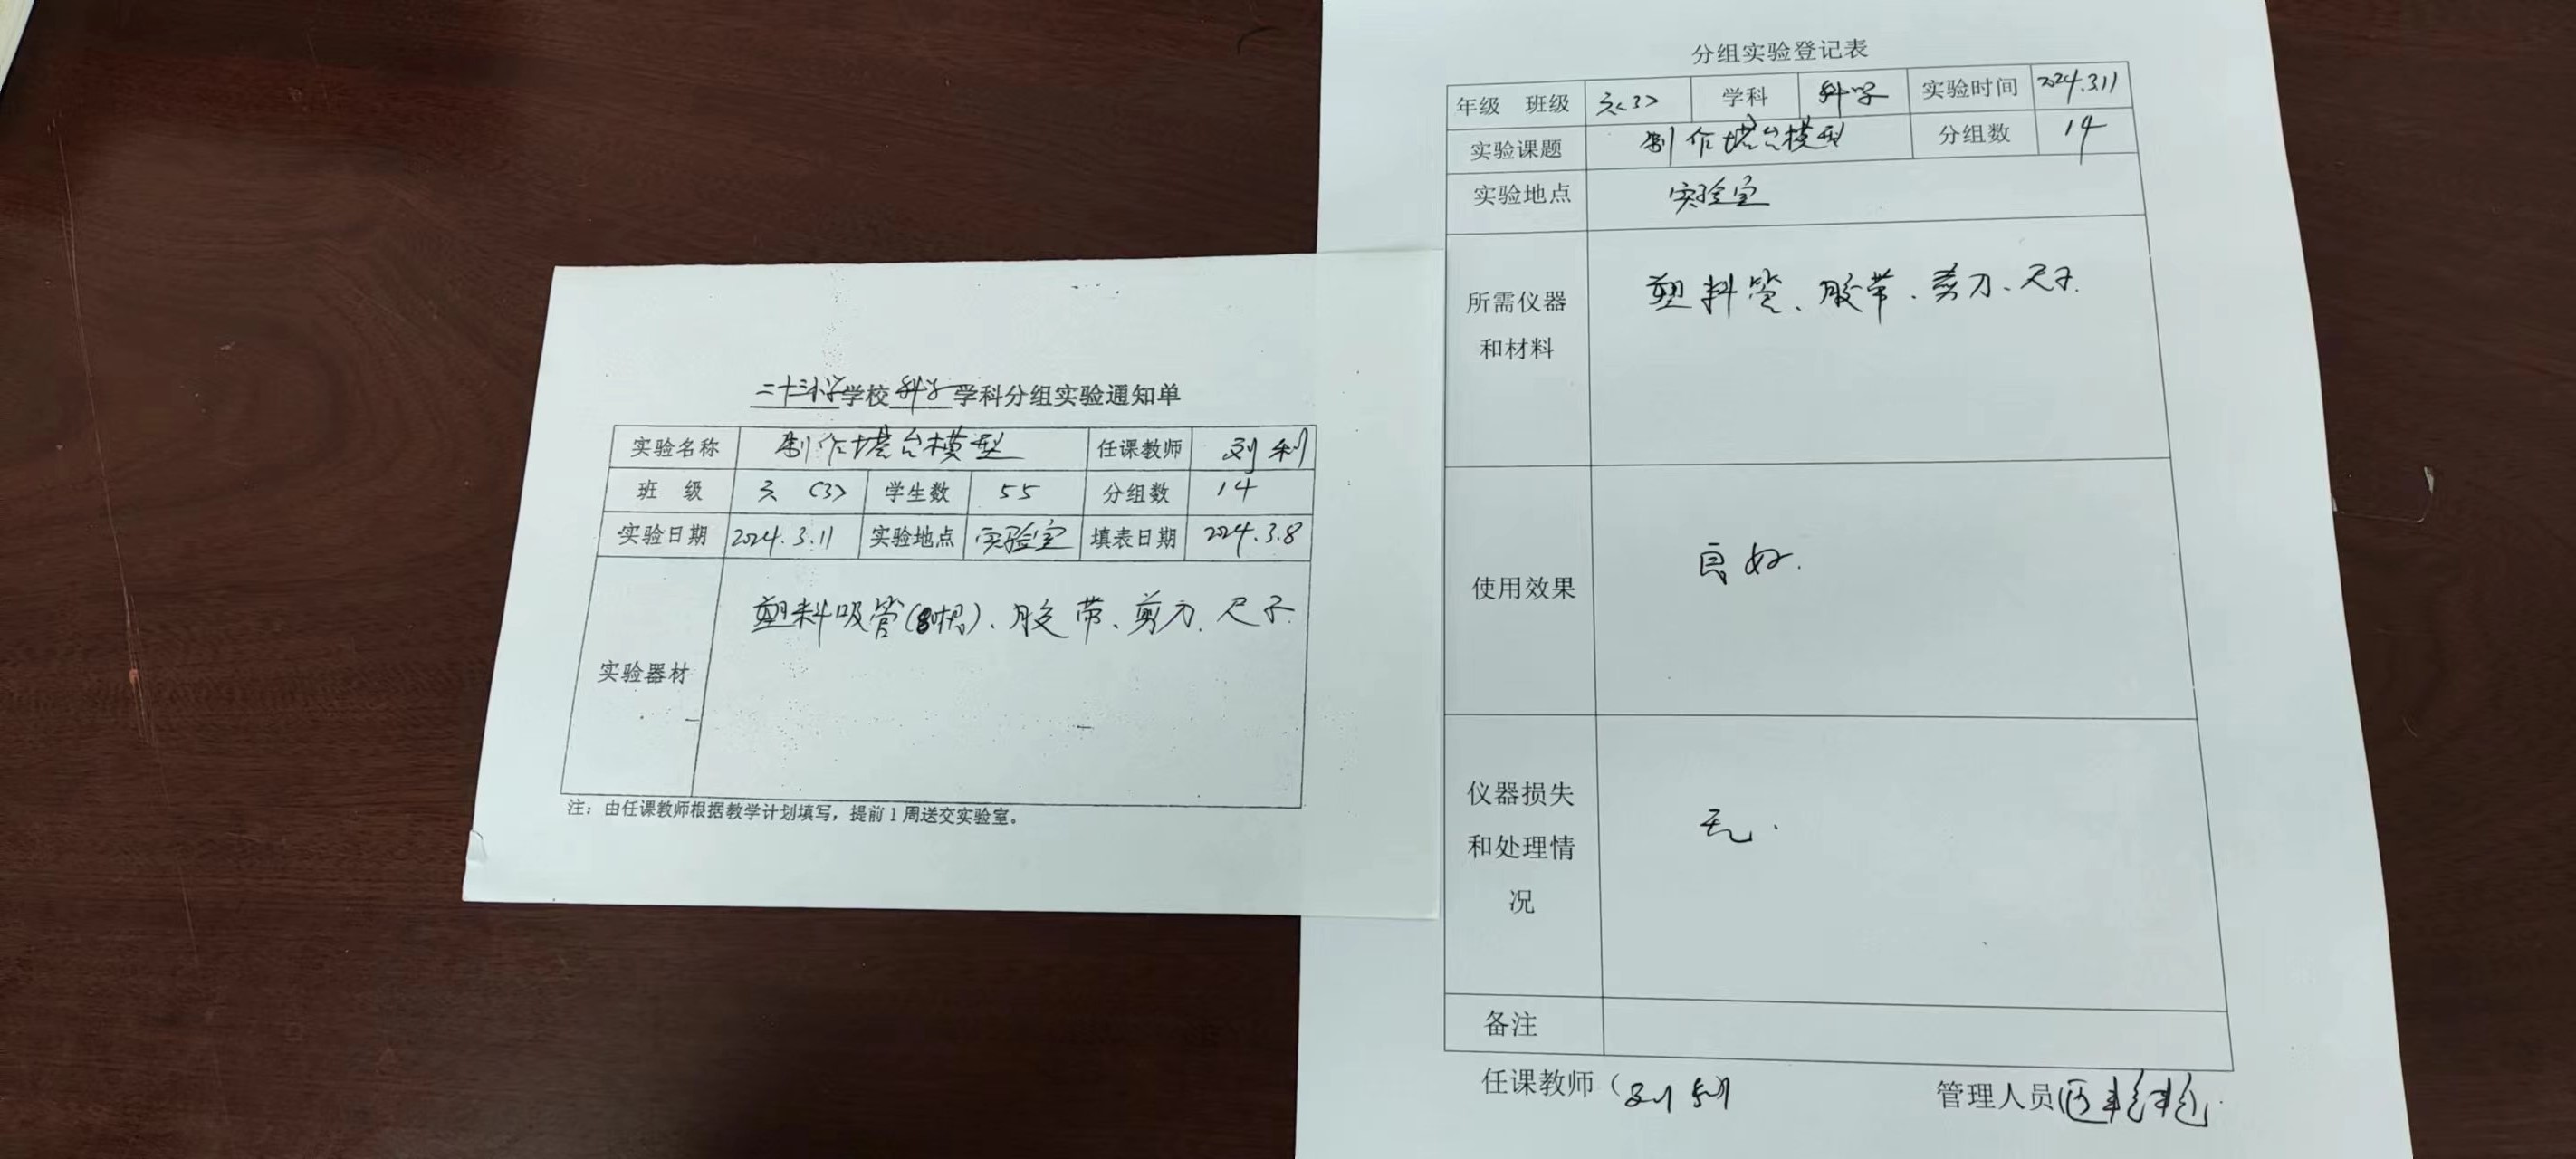 二十三小学学校科学学科分组实验通知单
实验名称 制作塔台模型 任课教师 刘利
班 级 六（3） 学生数 55 分组数 14
实验日期 2024.3.11 实验地点 实验室 填表日期 2024.3.8
实验器材 塑料吸管( 根)、胶带、剪刀、尺子.
注：由任课教师根据教学计划填写，提前1周送交实验室。
分组实验登记表
年级 班级 六<3> 学科 科学 实验时间 2024.3.11
实验课题 制作塔台模型 分组数 14
实验地点 实验室
所需仪器和材料 塑料管、胶带、剪刀、尺子.
使用效果 良好.
仪器损失和处理情况 无.
备注
任课教师（刘利） 管理人员(